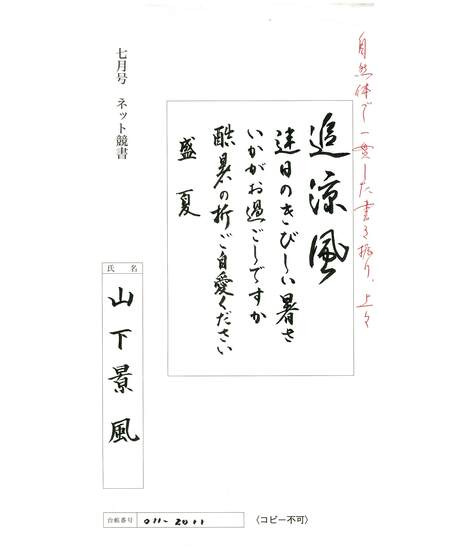 自然体で一貫した書き振り、上々
七月号 ネット競書
追涼風
連日のきびしい暑さ
いかがお過ごしですか
酷暑の折ご自愛ください
盛夏
氏名
山下景風
台帳番号
011-2011
〈コピー不可〉